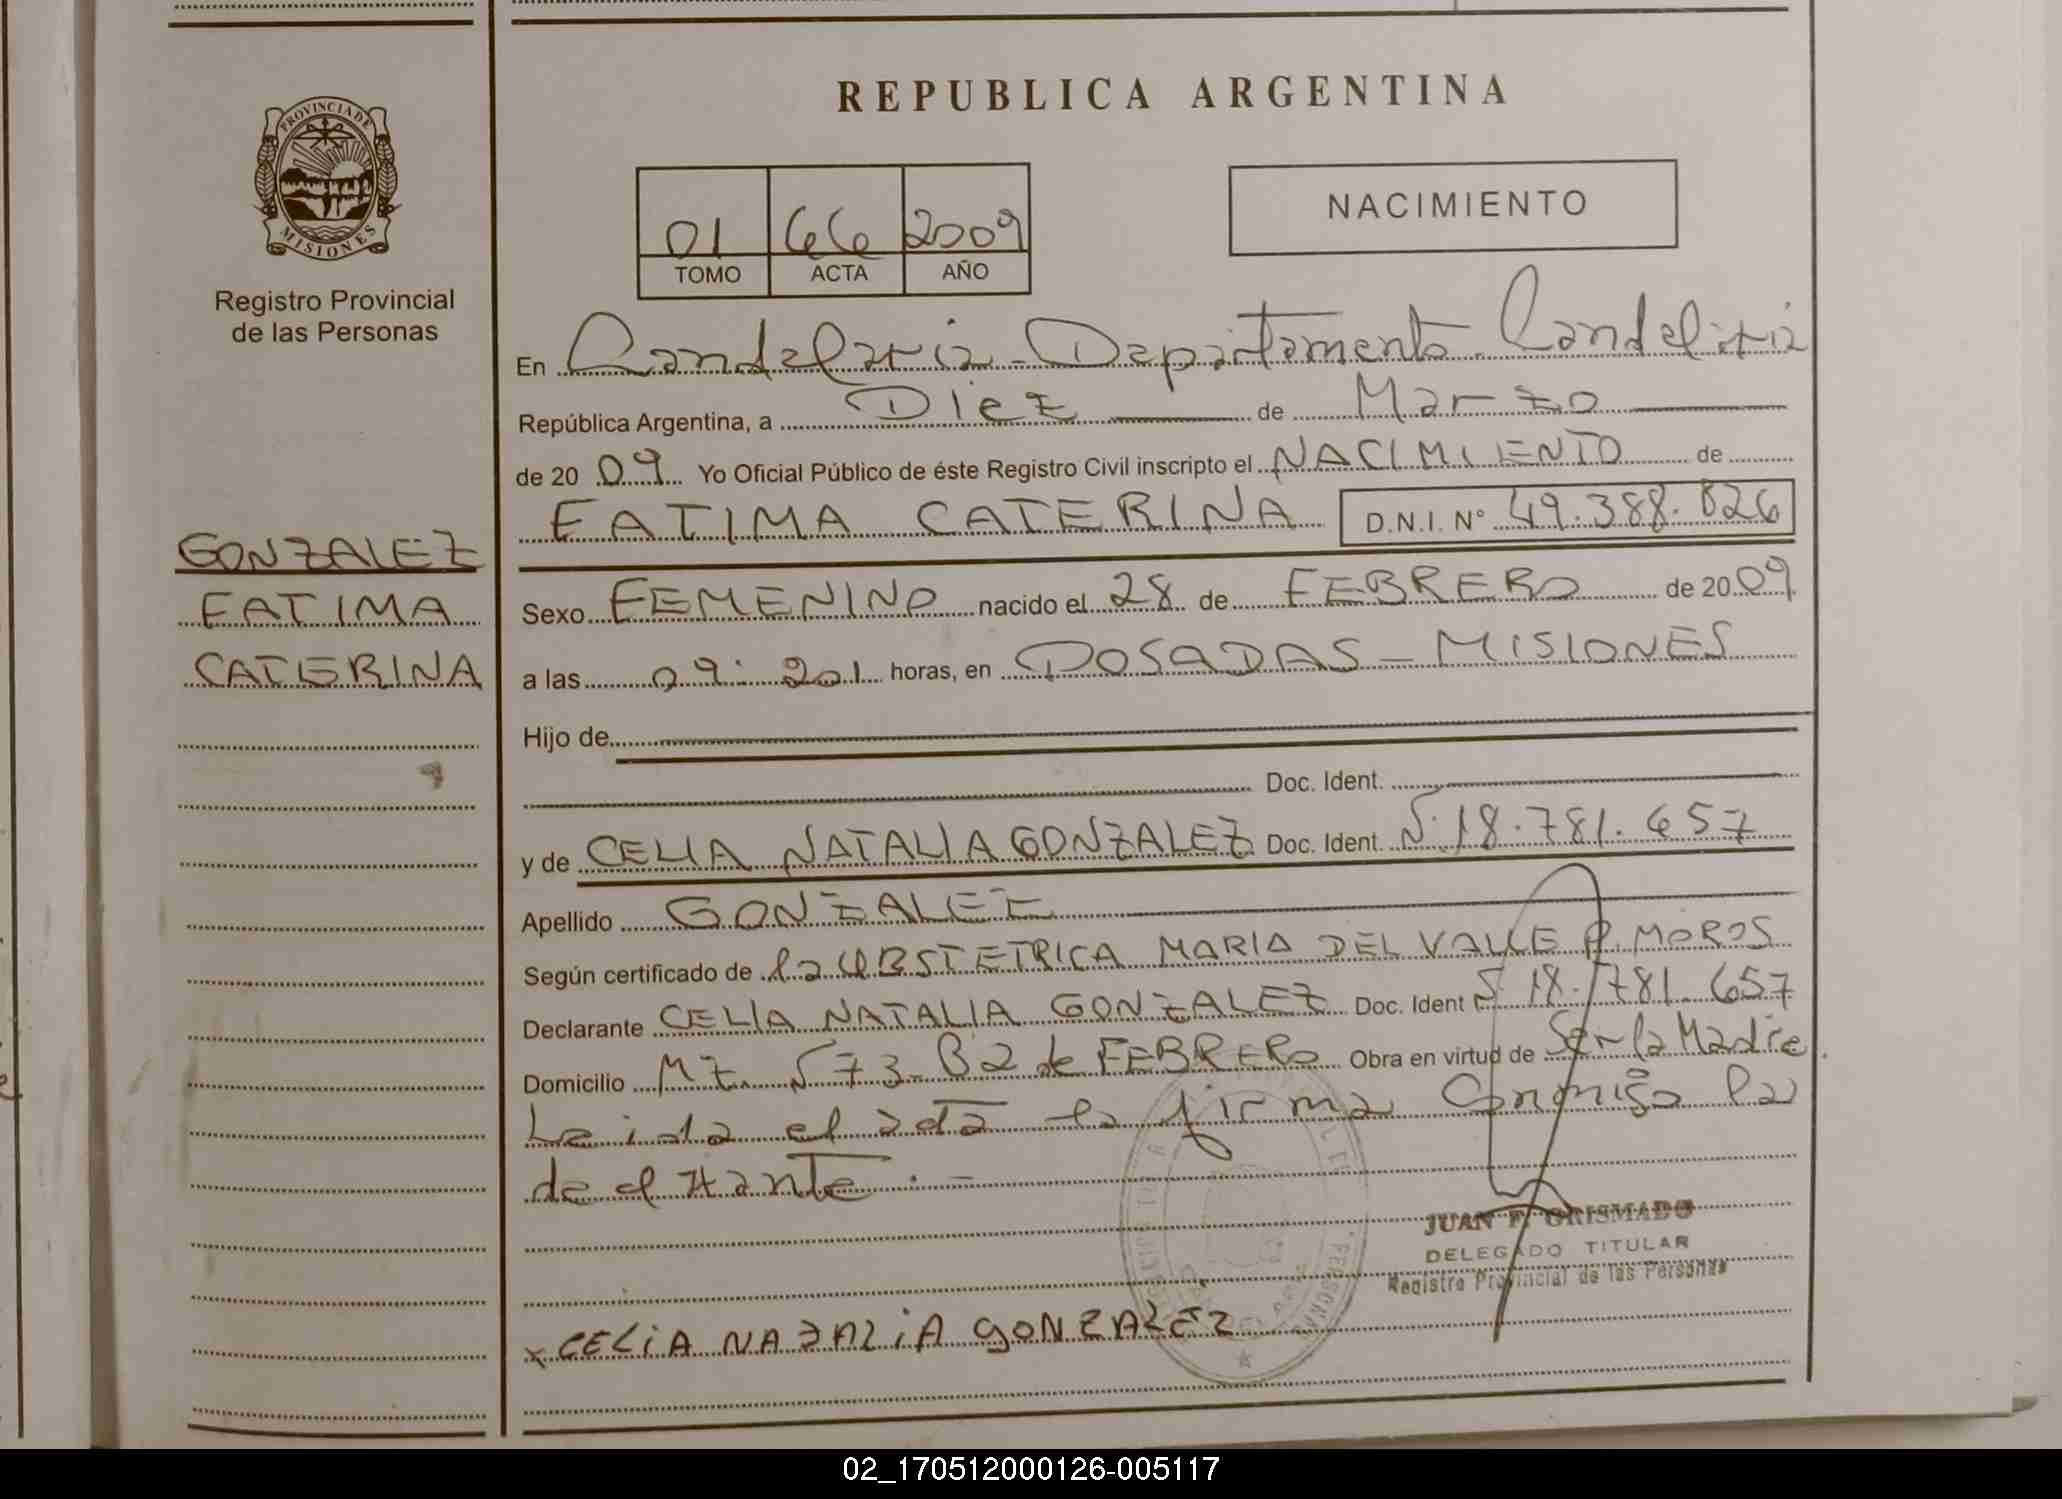 PROVINCIA DE
MISIONES
Registro Provincial
de las Personas
GONZALEZ
FATIMA
CATERINA
REPUBLICA ARGENTINA
01 66 2009
TOMO ACTA AÑO
NACIMIENTO
En Candelaria - Departamento Candelaria
República Argentina, a Diez de Marzo
de 20 09 Yo Oficial Público de éste Registro Civil inscripto el NACIMIENTO de
FATIMA CATERINA D.N.I. Nº 49.388.826
Sexo FEMENINO nacido el 28 de FEBRERO de 20 09
a las 09:20 horas, en POSADAS - MISIONES
Hijo de
Doc. Ident.
y de CELIA NATALIA GONZALEZ Doc. Ident. 18.781.657
Apellido GONZALEZ
Según certificado de la OBSTETRICA MARIA DEL VALLE P. MOROS
Declarante CELIA NATALIA GONZALEZ Doc. Ident 18.781.657
Domicilio MZ. 573. B 2 de FEBRERO Obra en virtud de Ser la Madre.
Leida el acta la firma Conmigo la
declarante . -
JUAN F. GRISMADO
DELEGADO TITULAR
Registro Provincial de las Personas
x CELIA NATALIA GONZALEZ
02_170512000126-005117